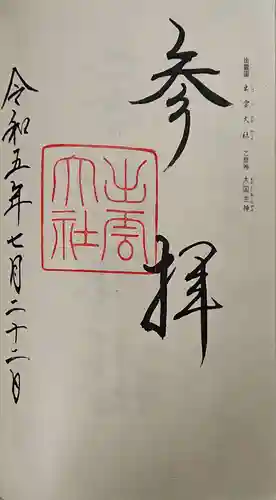 出雲國 出雲大社 ご祭神 大国主神
参拝
出雲
大社
令和五年七月二十二日